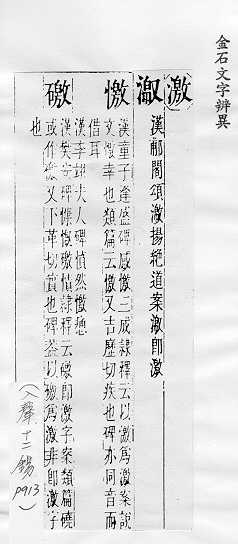 金石文字辨異
(激)
漢郙閣頌激揚絶道案激即激
憿
漢童子逢盛碑感憿三成隸釋云以憿爲激案說
文憿幸也類篇云憿又吉歷切疾也碑亦同音而
借耳
漢李翊夫人碑然憿
礉
漢樊安碑慷慨礉憤隸釋云礉即激字案類篇磽
或作礉又下革切也碑葢以礉爲激非即激字
也
(入聲十二錫 p913)